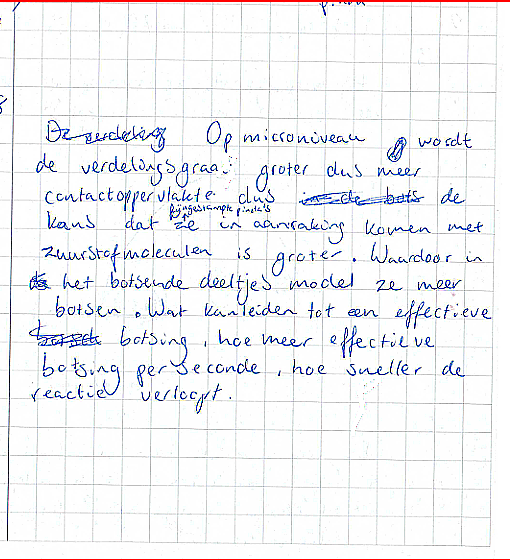 Op microniveau wordt
de verdelingsgraad groter dus meer
contactoppervlakte dus de
fijngestampte pinda's
kans dat ze in aanraking komen met
zuurstofmoleculen is groter. Waardoor in
het botsende deeltjes model ze meer
botsen. Wat kan leiden tot een effectieve
botsing, hoe meer effectieve
botsing per seconde, hoe sneller de
reactie verloopt.